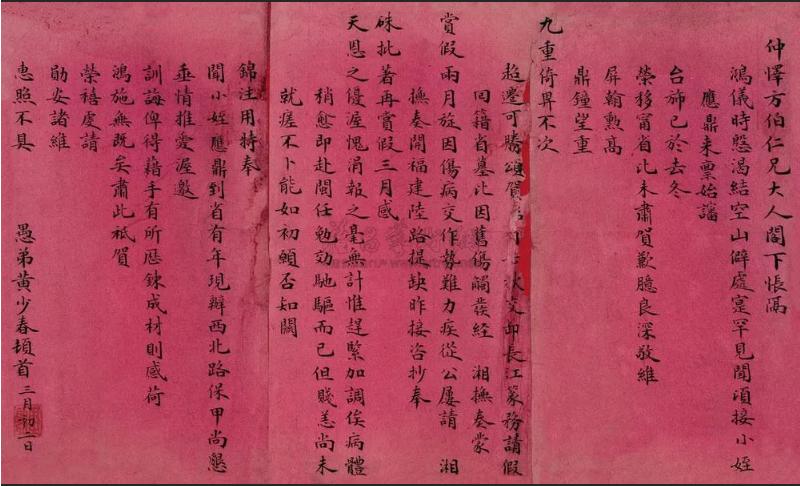 仲懌方伯仁兄大人閣下悵隔
鴻儀時慇渴結空山僻處寔罕見聞頃接小姪
應鼎来禀始諗
台斾已於去冬
榮移甯省比未肅賀歉臆良深敬維
屏翰勲高
鼎鐘望重
九重倚畀不次
超遷可勝頌賀 七次交卸長江篆務請假
回籍省墓比因舊傷觸發經 湘撫奏蒙
賞假兩月旋因傷病交作勢難力疾從公屢請 湘
撫奏開福建陸路提缺昨接咨抄奉
硃批著再賞假三月感
天恩之優渥愧涓報之毫無計惟趕緊加調俟病體
稍愈即赴閩任勉効馳驅而已但賤恙尚未
就痊不卜能如初願否知關
錦注用特奉
聞小姪應鼎到省有年現辦西北路保甲尚懇
垂情推愛渥邀
訓誨俾得藉手有所歷鍊成材則感荷
鴻施無既矣肅此祗賀
榮禧處請
勛安諸維
惠照不具
愚弟黄少春頓首 三月初二日